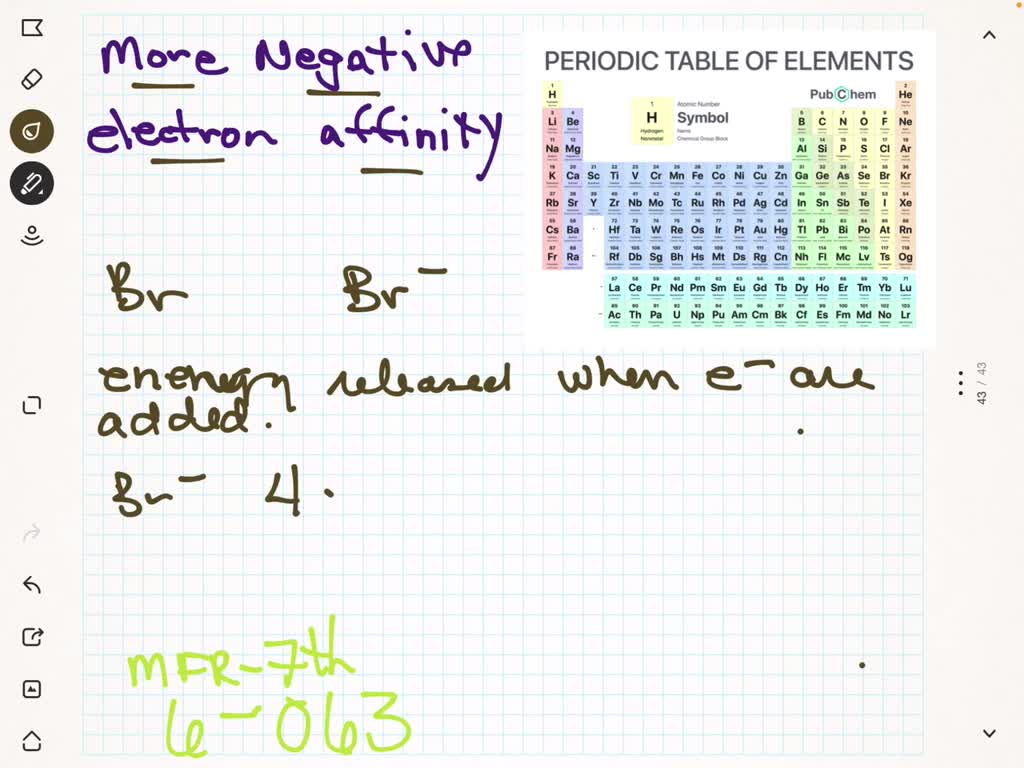 More Negative
electron affinity
Br Br⁻
enenergy released when e⁻ are
added.
Br⁻ 4.
MFR-7th
6-063
PERIODIC TABLE OF ELEMENTS
PubChem
1 Atomic Number
H Symbol
Hydrogen Name
Nonmetal Chemical Group Block
1 H 2 He
3 Li 4 Be 5 B 6 C 7 N 8 O 9 F 10 Ne
11 Na 12 Mg 13 Al 14 Si 15 P 16 S 17 Cl 18 Ar
19 K 20 Ca 21 Sc 22 Ti 23 V 24 Cr 25 Mn 26 Fe 27 Co 28 Ni 29 Cu 30 Zn 31 Ga 32 Ge 33 As 34 Se 35 Br 36 Kr
37 Rb 38 Sr 39 Y 40 Zr 41 Nb 42 Mo 43 Tc 44 Ru 45 Rh 46 Pd 47 Ag 48 Cd 49 In 50 Sn 51 Sb 52 Te 53 I 54 Xe
55 Cs 56 Ba 72 Hf 73 Ta 74 W 75 Re 76 Os 77 Ir 78 Pt 79 Au 80 Hg 81 Tl 82 Pb 83 Bi 84 Po 85 At 86 Rn
87 Fr 88 Ra 104 Rf 105 Db 106 Sg 107 Bh 108 Hs 109 Mt 110 Ds 111 Rg 112 Cn 113 Nh 114 Fl 115 Mc 116 Lv 117 Ts 118 Og
57 La 58 Ce 59 Pr 60 Nd 61 Pm 62 Sm 63 Eu 64 Gd 65 Tb 66 Dy 67 Ho 68 Er 69 Tm 70 Yb 71 Lu
89 Ac 90 Th 91 Pa 92 U 93 Np 94 Pu 95 Am 96 Cm 97 Bk 98 Cf 99 Es 100 Fm 101 Md 102 No 103 Lr
43 / 43